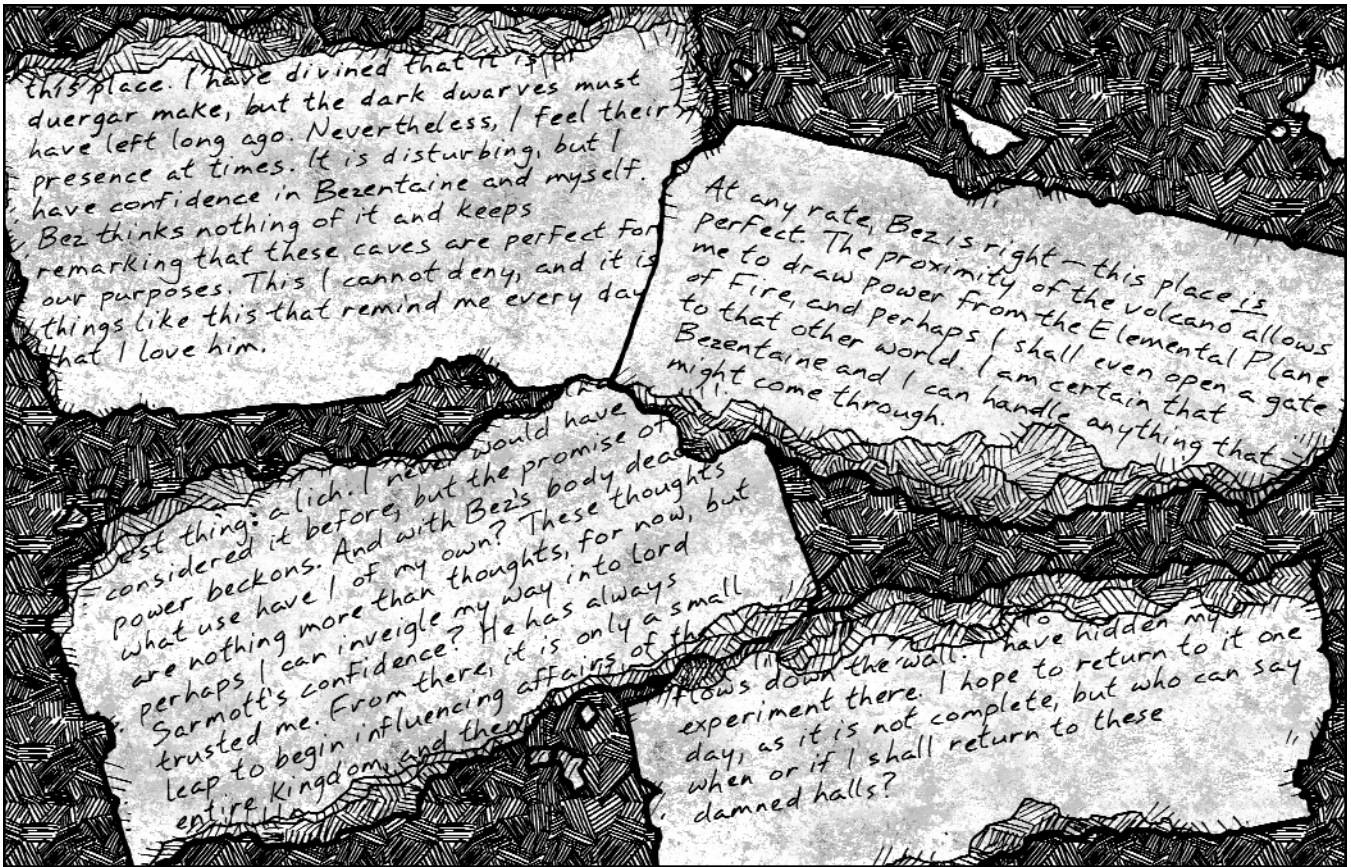 this place. I have divined that it is
duergar make, but the dark dwarves must
have left long ago. Nevertheless, I feel their
presence at times. It is disturbing, but I
have confidence in Bezentaine and myself.
Bez thinks nothing of it and keeps
remarking that these caves are perfect for
our purposes. This I cannot deny, and it is
things like this that remind me every day
that I love him.
At any rate, Bez is right — this place is
perfect. The proximity of the volcano allows
me to draw power from the Elemental Plane
of Fire, and perhaps I shall even open a gate
to that other world. I am certain that
Bezentaine and I can handle anything that
might come through.
est thing: a lich. I never would have
considered it before, but the promise of
power beckons. And with Bez's body dead
what use have I of my own? These thoughts
are nothing more than thoughts, for now, but
perhaps I can inveigle my way into lord
Sarmott's confidence? He has always
trusted me. From there, it is only a small
leap to begin influencing affairs of the
entire kingdom, and then
flows down the wall. I have hidden my
experiment there. I hope to return to it one
day, as it is not complete, but who can say
when or if I shall return to these
damned halls?